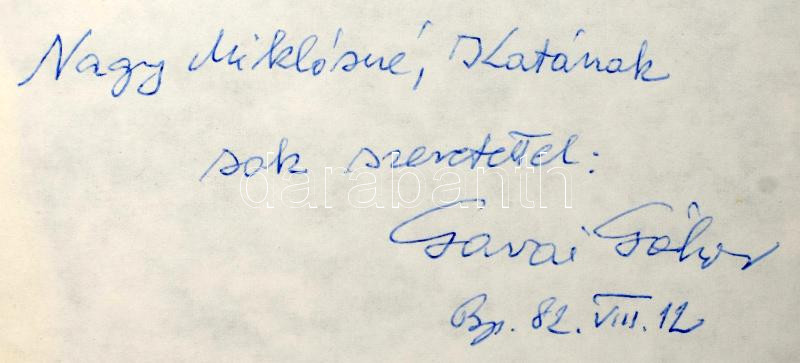 Nagy Miklósné, Katának
sok szeretettel:
darabanth
Gavai Gábor
Bp. 82. VIII. 12